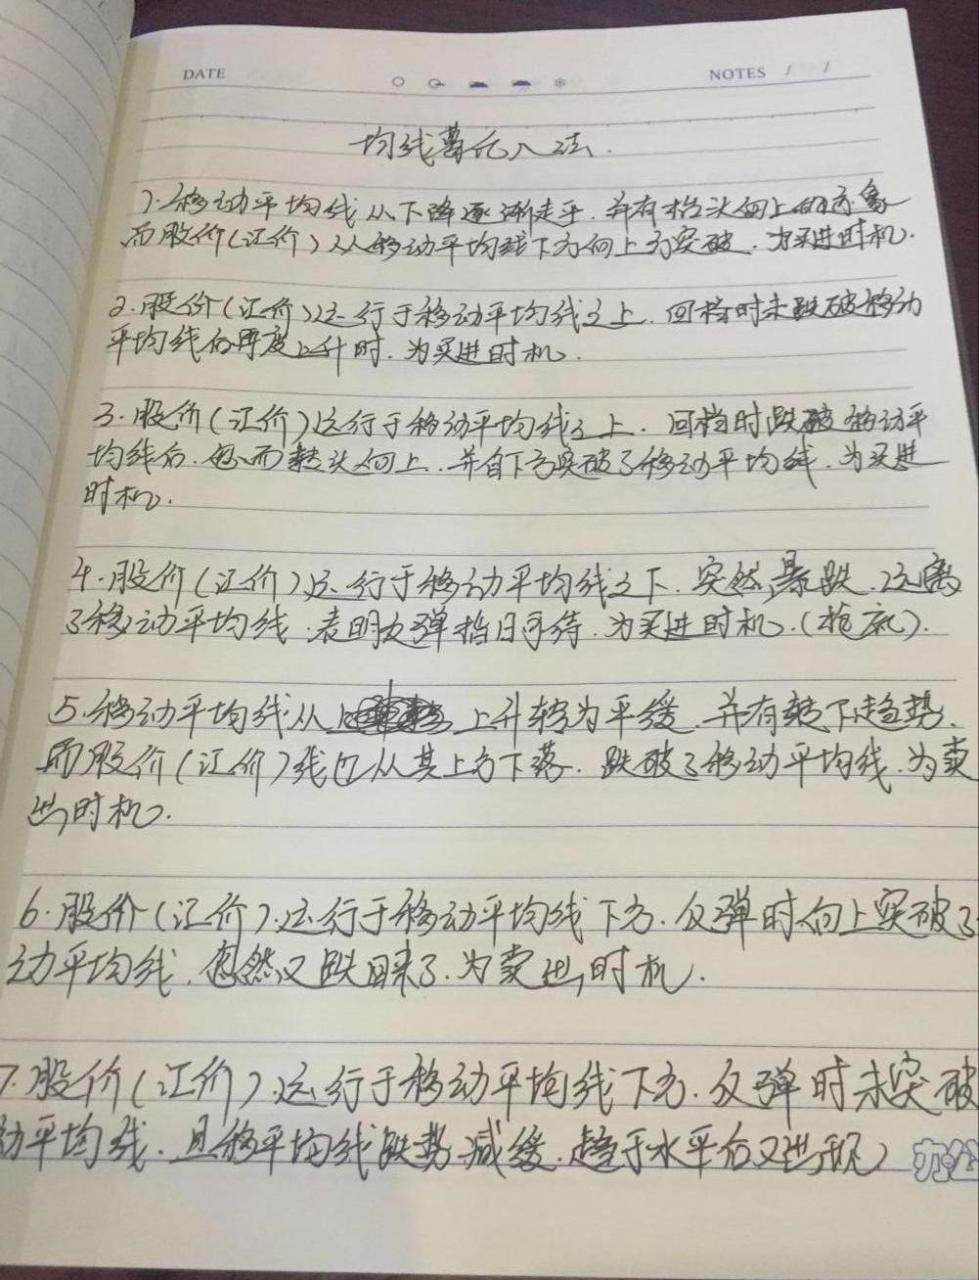 DATE
NOTES / /
均线葛氏八法.
1.移动平均线从下降逐渐走平.并有抬头向上的迹象
而股价(汇价)从移动平均线下方向上方突破.为买进时机.
2.股价(汇价)运行于移动平均线之上.回档时未跌破移动
平均线后再度上升时.为买进时机.
3.股价(汇价)运行于移动平均线之上.回档时跌破移动平
均线后.忽而转头向上.并自下方突破了移动平均线.为买进
时机.
4.股价(汇价)运行于移动平均线之下.突然暴跌.远离
了移动平均线.表明反弹指日可待.为买进时机.(抢底).
5.移动平均线从上升转为平缓.并有转下趋势.
而股价(汇价)线也从其上方下落.跌破了移动平均线.为卖
出时机.
6.股价(汇价)运行于移动平均线下方.反弹时向上突破了
动平均线.忽然又跌回来了.为卖出时机.
7.股价(汇价)运行于移动平均线下方.反弹时未突破
动平均线.且移平均线跌势减缓.趋于水平后又出现
办公